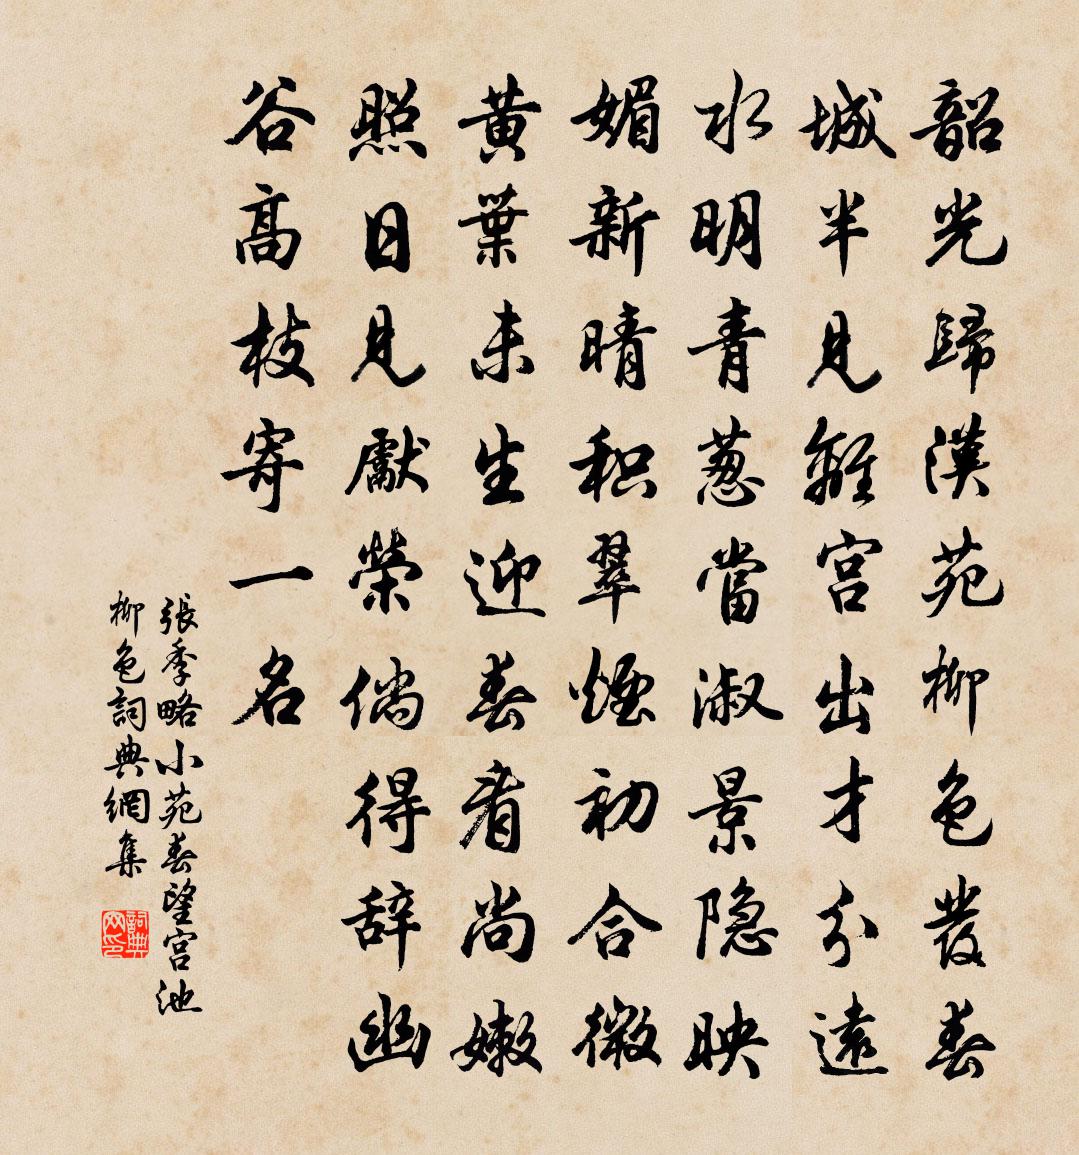 韶光歸漢苑柳色發春
城半見離宮出才分遠
水明青蔥當淑景隱映
媚新晴积翠煙初合微
黃葉未生迎春看尚嫩
照日見獻榮倘得辞幽
谷高枝寄一名
張季略小苑春望宮池
柳色詞典網集
詞典网印